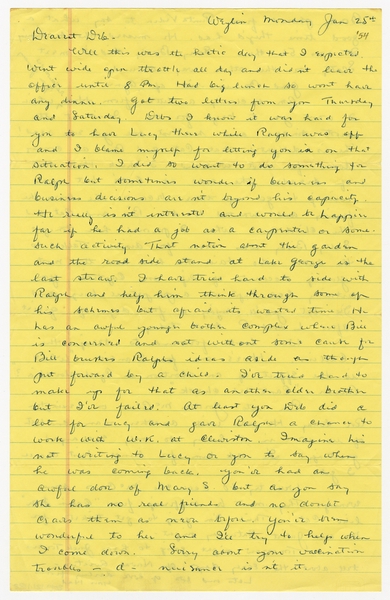 Monday Jan 25th
'54
Dearest Deb.
Well this was the hectic day that I expected
Went wide open throttle all day and didn't leave the
office until 8 Pm. Had big lunch so won't have
any dinner. Got two letters from you Thursday
and Saturday Deb I know it was hard for
you to have Lucy there while Ralph was off
and I blame myself for letting you in on that
situation. I did so want to do something for
Ralph but sometimes wonder if business and
business decisions aren't beyond his capacity.
He really isn't interested and would be happier
far if he had a job as a carpenter or some
such activity. That notion about the garden
and the road side stand at Lake George is the
last straw. I have tried hard to side with
Ralph and help him think through some of
his schemes but afraid its wasted time He
has an awful younger brother complex where Bill
is concerned and not without some cause for
Bill brushes Ralphs ideas aside as though
put forward by a child. I've tried hard to
make up for that as another older brother
but I've failed. At least you Deb did a
lot for Lucy and gave Ralph a chance to
work with W.K. at Clewiston. Imagine his
not writing to Lucy or you to say when
he was coming back. You've had an
awful dose of Mary S but as you say
she has no real friends and no doubt
craves them as never before. You've been
wonderful to her and I'll try to help when
I come down. Sorry about your vaccination
troubles — d— nuisance isn't it.